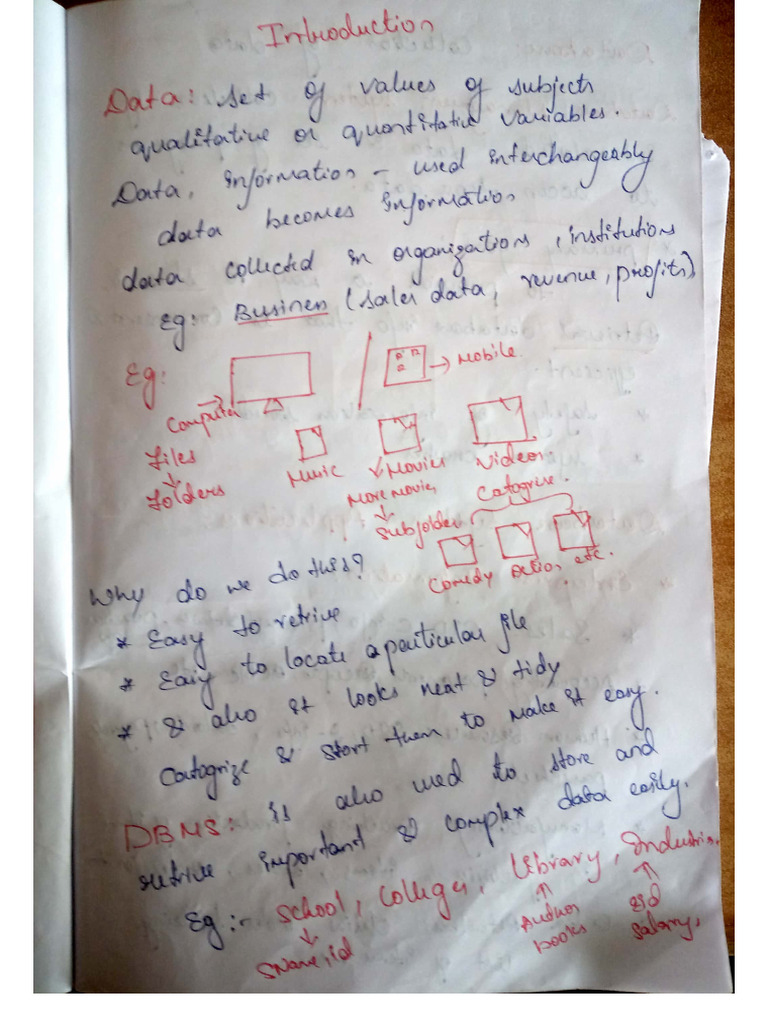 Introduction
Data: set of values of subjects
qualitative or quantitative variables.
Data, information - used interchangeably
data becomes information
data collected in organizations, institutions
eg: Business (sales data, revenue, profits)
Eg:
→ Mobile
Computer
Files
↓
Folders
Music
Movies
Videos
↓
More movies
Catogrise.
↓
Subfolder
Comedy Action etc.
Why do we do this?
* Easy to retrive
* Easy to locate a particular file
* & also it looks neat & tidy
Catogrize & start them to make it easy.
DBMS: is also used to store and
retrive important & complex data easily.
Eg:- School, Colleges, Library, Industries.
↓ ↑ ↑
Sname, id
Author
books
eid
salary.